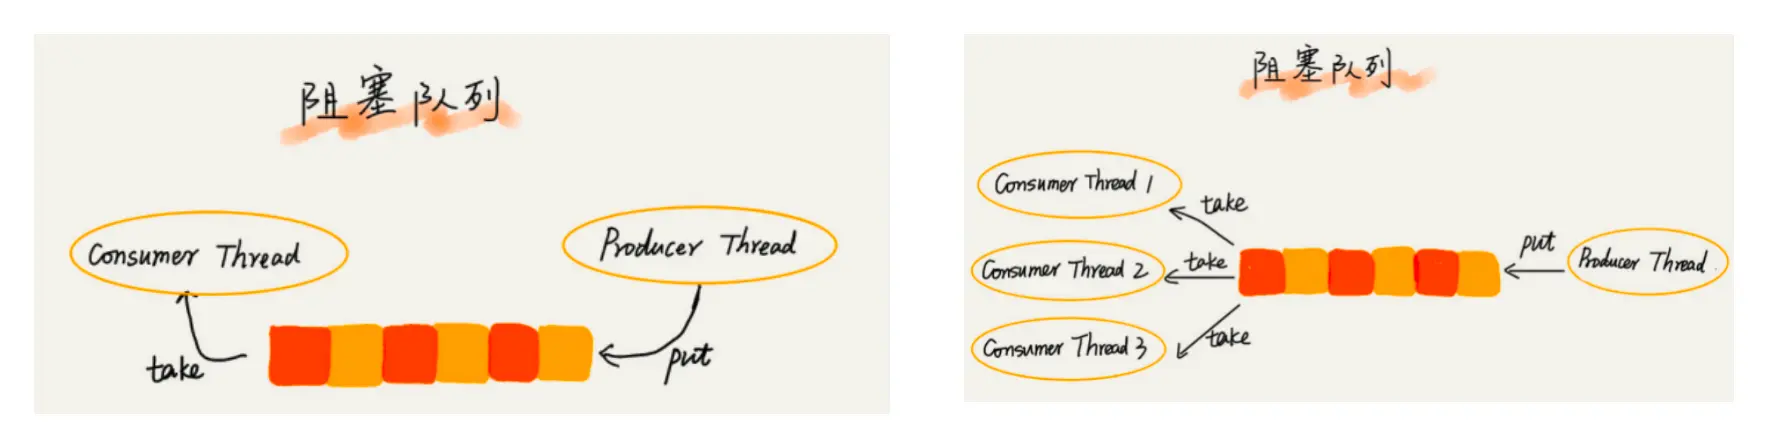 阻塞队列
Consumer Thread
Producer Thread
take
put
阻塞队列
Consumer Thread 1
take
Consumer Thread 2
take
put
Producer Thread
Consumer Thread 3
take